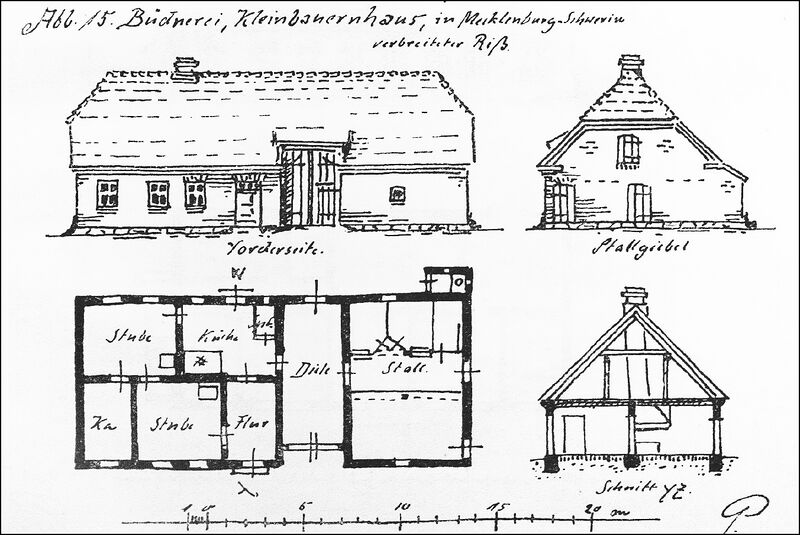 Abb. 15. Büdnerei, Kleinbauernhaus, in Mecklenburg-Schwerin
verbreiteter Riß.
Vorderseite.
Stallgiebel
Stube
Küche
Diele
Stall.
Ka
Stube
Flur
Schnitt YZ.
1 0 5 10 15 20 m